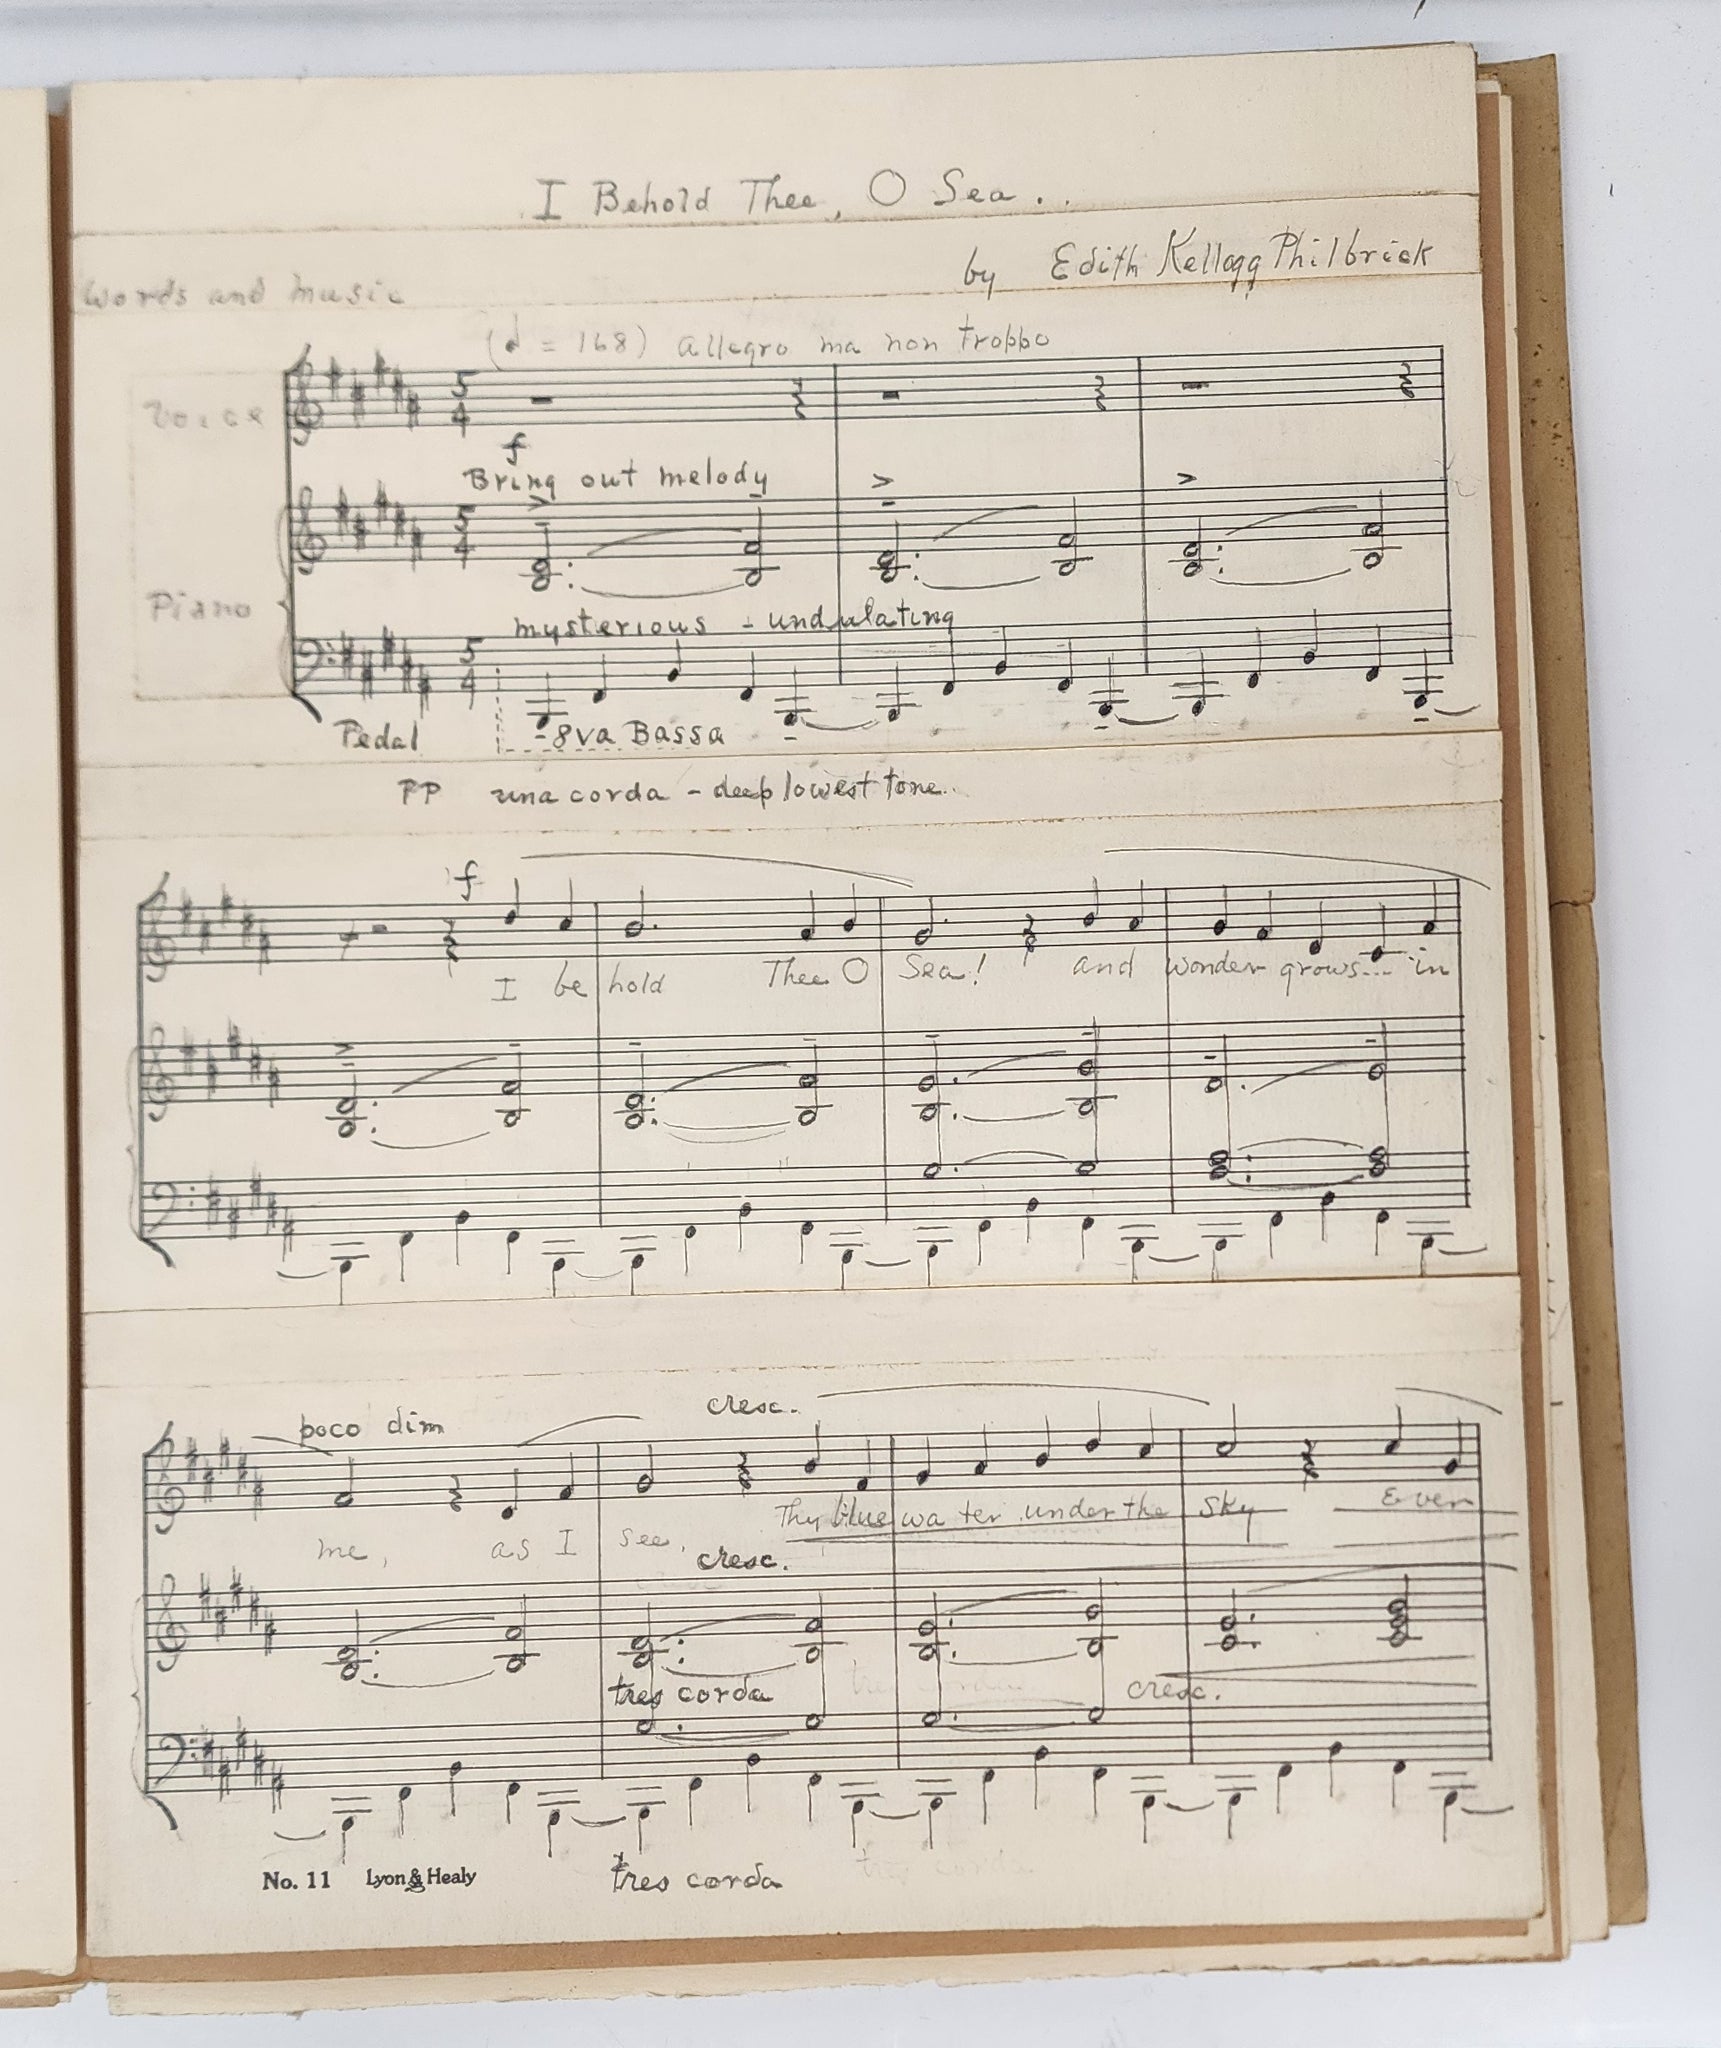 I Behold Thee, O Sea..
by Edith Kellogg Philbrick
Words and music
(♩ = 168) allegro ma non troppo
Voice
5 4
f
Bring out melody
5 4
Piano
mysterious - undulating
5 4
Pedal
8va Bassa
PP una corda - deep lowest tone..
f
I be hold Thee O Sea! and wonder grows... in
poco dim
cresc.
me, as I see, Thy blue wa ter under the sky Ever
cresc.
tres corda
cresc.
No. 11 Lyon & Healy
tres corda